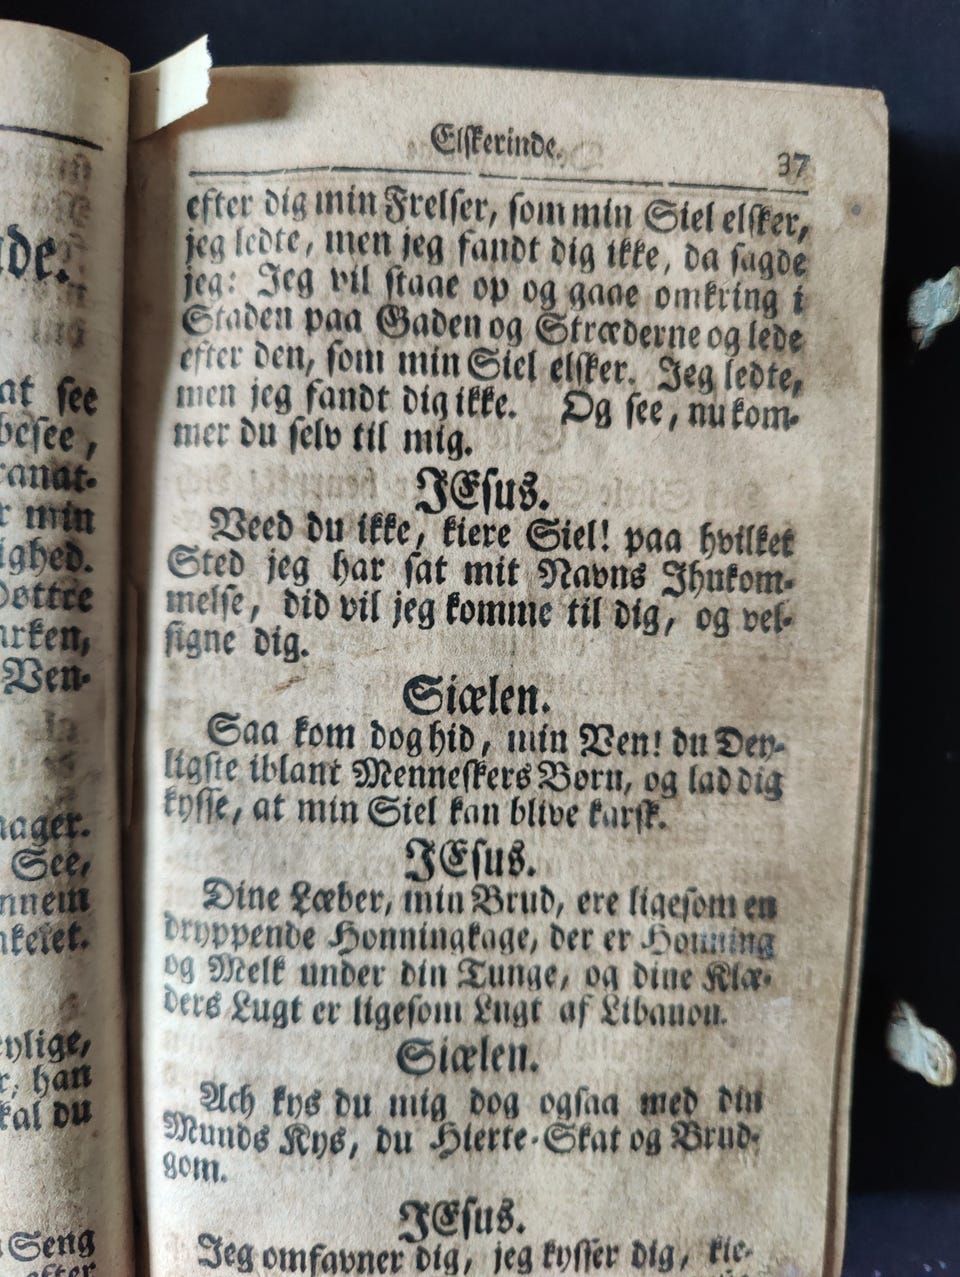 de.
at see
besee,
ranat-
r min
ighed.
Døttre
arken,
Ven-
ager.
See,
nnem
nkelet.
eylige,
r, han
kal du
Seng
efter
Elskerinde. 37
efter dig min Frelser, som min Siel elsker,
jeg ledte, men jeg fandt dig ikke, da sagde
jeg: Jeg vil staae op og gaae omkring i
Staden paa Gaden og Stræderne og lede
efter den, som min Siel elsker. Jeg ledte,
men jeg fandt dig ikke. Og see, nu kom-
mer du selv til mig.
JEsus.
Veed du ikke, kiere Siel! paa hvilket
Sted jeg har sat mit Navns Ihukom-
melse, did vil jeg komme til dig, og vel-
signe dig.
Siælen.
Saa kom dog hid, min Ven! du Dey-
ligste iblant Menneskers Børn, og lad dig
kysse, at min Siel kan blive karsk.
JEsus.
Dine Læber, min Brud, ere ligesom en
dryppende Honningkage, der er Honning
og Melk under din Tunge, og dine Klæ-
ders Lugt er ligesom Lugt af Libanon.
Siælen.
Ach kys du mig dog ogsaa med din
Munds Kys, du Hierte-Skat og Brud-
gom.
JEsus.
Jeg omfavner dig, jeg kysser dig, kie-